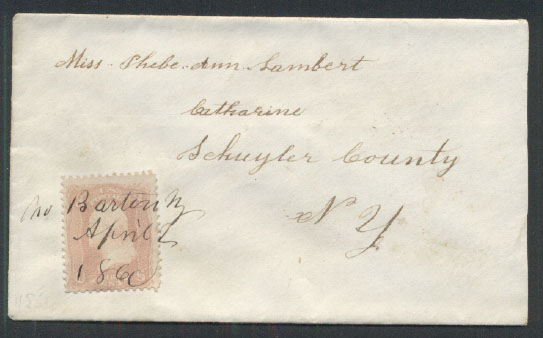 Miss Phebe Ann Lambert
Catharine
Schuyler County
N Y
Barton N
April
186